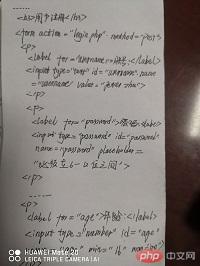 ......
<h3>用户注册</h3>
<form action="login.php" method="post">
<p>
<label for="username">姓名:</label>
<input type="text" id="username" name
="username" value="
</p>
<p>
<label for="password">密码:</label>
<input type="password" id="password"
name="password" placeholder=
"必须在6-12位之间">
</p>
......
<p>
<label for="age">年龄:</label>
<input type="number" id="age"
min="16"
MI 9
LEICA TRIPLE CAMERA | AI
php 中文网